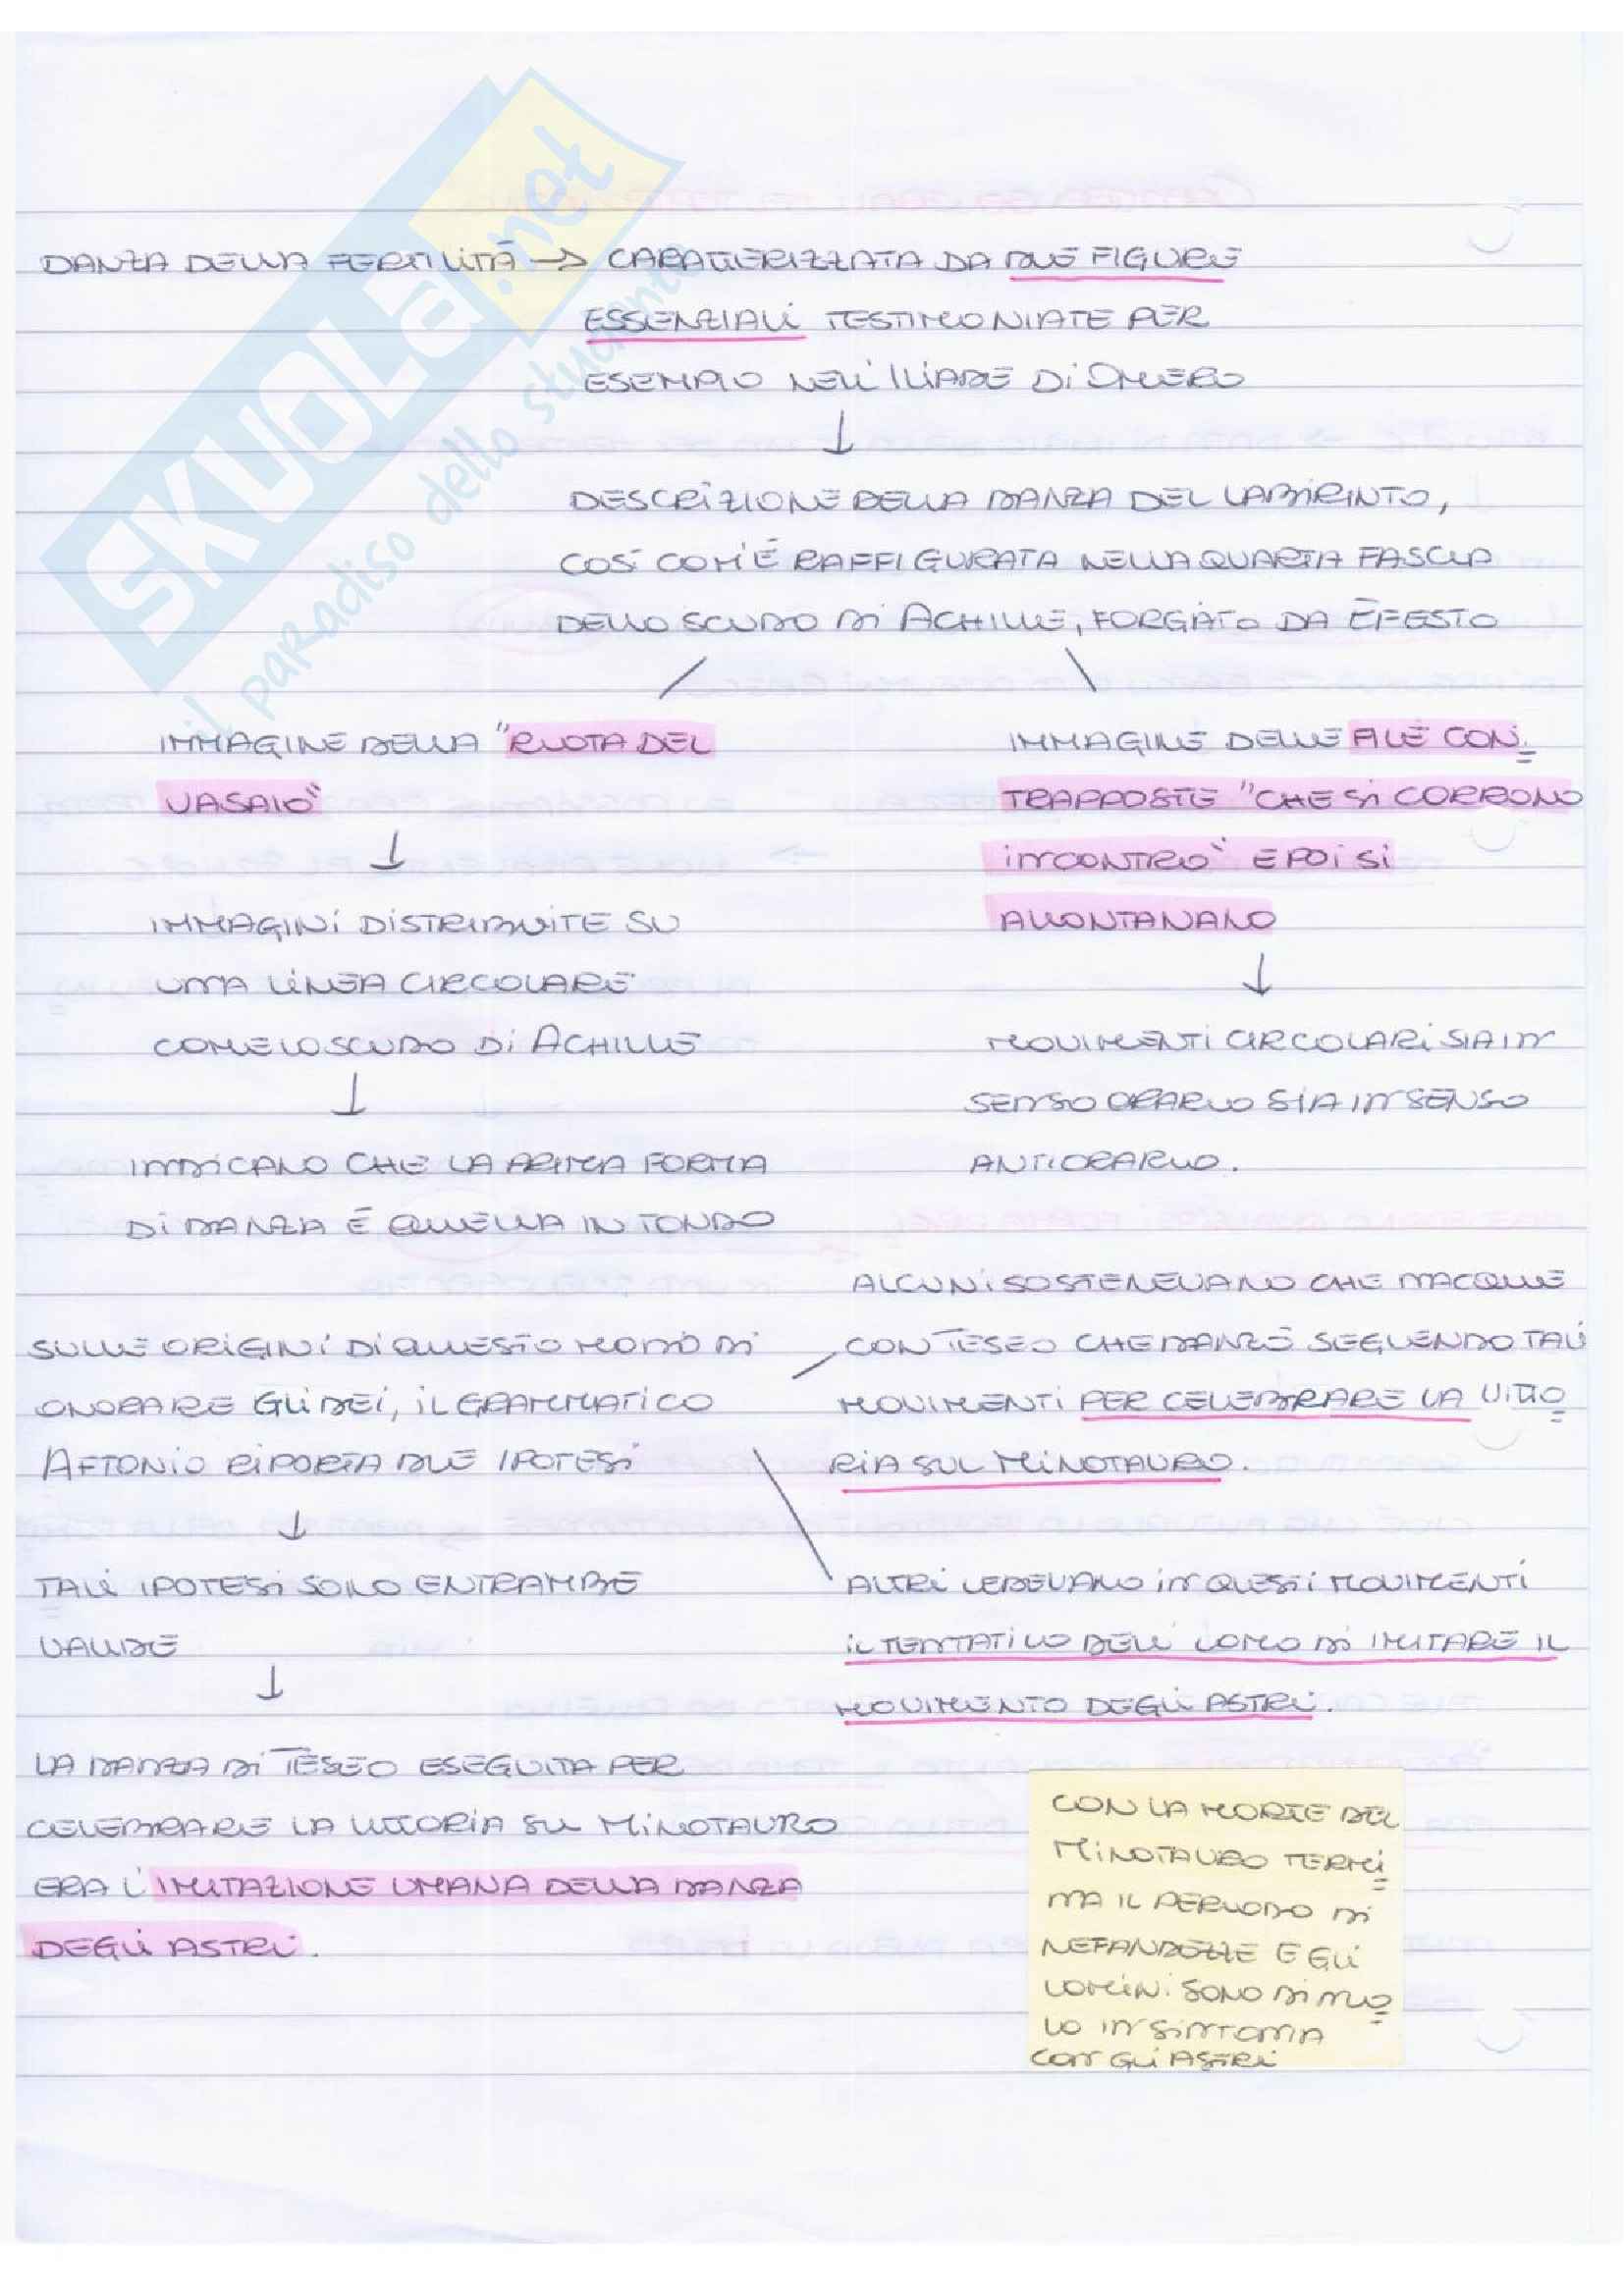 SKUOLA.net
il paradiso dello studente
DANZA DELLA FERTILITÀ → CARATTERIZZATA DA DUE FIGURE
ESSENZIALI TESTIMONIATE PER
ESEMPIO NELL'ILIADE DI OMERO
↓
DESCRIZIONE DELLA DANZA DEL LABIRINTO,
COSÌ COM'È RAFFIGURATA NELLA QUARTA FASCIA
DELLO SCUDO DI ACHILLE, FORGIATO DA EFESTO
IMMAGINE DELLA "RUOTA DEL
VASAIO"
↓
IMMAGINI DISTRIBUITE SU
UNA LINEA CIRCOLARE
COME LO SCUDO DI ACHILLE
↓
INDICANO CHE LA PRIMA FORMA
DI DANZA È QUELLA IN TONDO
IMMAGINE DELLE FILE CON=
TRAPPOSTE "CHE SI CORRONO
INCONTRO" E POI SI
ALLONTANANO
↓
MOVIMENTI CIRCOLARI SIA IN
SENSO ORARIO SIA IN SENSO
ANTIORARIO.
SULLE ORIGINI DI QUESTO MODO DI
ONORARE GLI DEI, IL GRAMMATICO
AFTONIO RIPORTA DUE IPOTESI
↓
TALI IPOTESI SONO ENTRAMBE
VALIDE
↓
LA DANZA DI TESEO ESEGUITA PER
CELEBRARE LA VITTORIA SUL MINOTAURO
ERA L'IMITAZIONE UMANA DELLA DANZA
DEGLI ASTRI.
ALCUNI SOSTENEVANO CHE NACQUE
CON TESEO CHE DANZÒ SEGUENDO TALI
MOVIMENTI PER CELEBRARE LA VITTO=
RIA SUL MINOTAURO.
ALTRI VEDEVANO IN QUESTI MOVIMENTI
IL TENTATIVO DELL'UOMO DI IMITARE IL
MOVIMENTO DEGLI ASTRI.
CON LA MORTE DEL
MINOTAURO TERMI=
NA IL PERIODO DI
NEFANDEZZE E GLI
UOMINI SONO DI NUO=
VO IN SINTONIA
CON GLI ASTRI